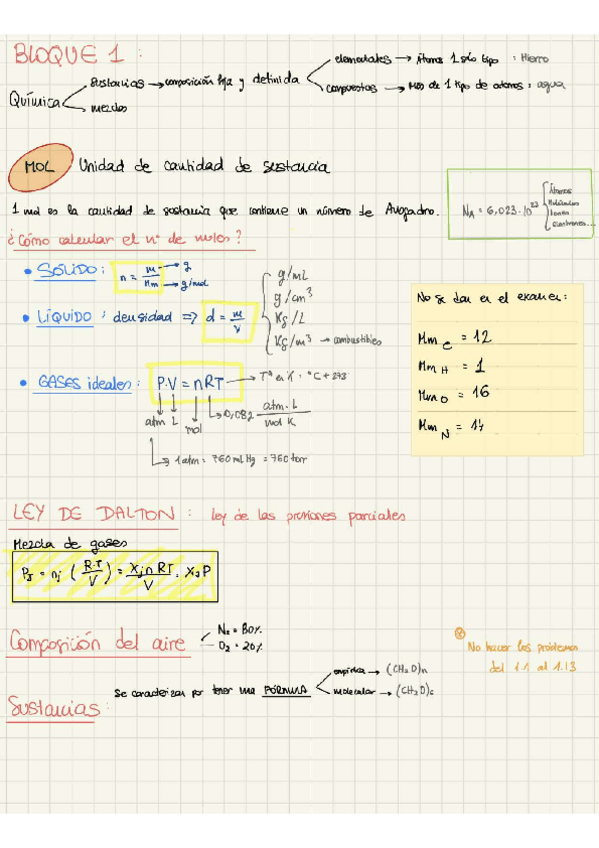 BLOQUE 1 :
Química
Sustancias → composición fija y definida
elementales → Átomos 1 sólo tipo : Hierro
compuestos → Más de 1 tipo de átomos : agua
mezclas
MOL Unidad de cantidad de sustancia
1 mol es la cantidad de sustancia que contiene un número de Avogadro.
NA = 6,023·10²³
Átomos
Moléculas
Iones
electrones...
¿Cómo calcular el nº de moles?
• SÓLIDO : n = m/Mm
→ g
→ g/mol
• LÍQUIDO : densidad => d = m/v
g/mL
g/cm³
Kg/L
Kg/m³ → combustibles
• GASES ideales : P·V = nRT → Tª en K : °C + 273
atm L mol → 0,082 atm·L / mol K
→ 1 atm = 760 ml Hg = 760 torr
No se dan en el examen :
Mm C = 12
Mm H = 1
Mm O = 16
Mm N = 14
LEY DE DALTON : ley de las presiones parciales
Mezcla de gases
PJ = nj (R·T/V) = XJ n RT/V = XJ P
Composición del aire
N₂ = 80%
O₂ = 20%
No hacer los problemas
del 1.1 al 1.13
Sustancias :
Se caracterizan por tener una FÓRMULA
empírica → (CH₂O)n
molecular → (CH₂O)6